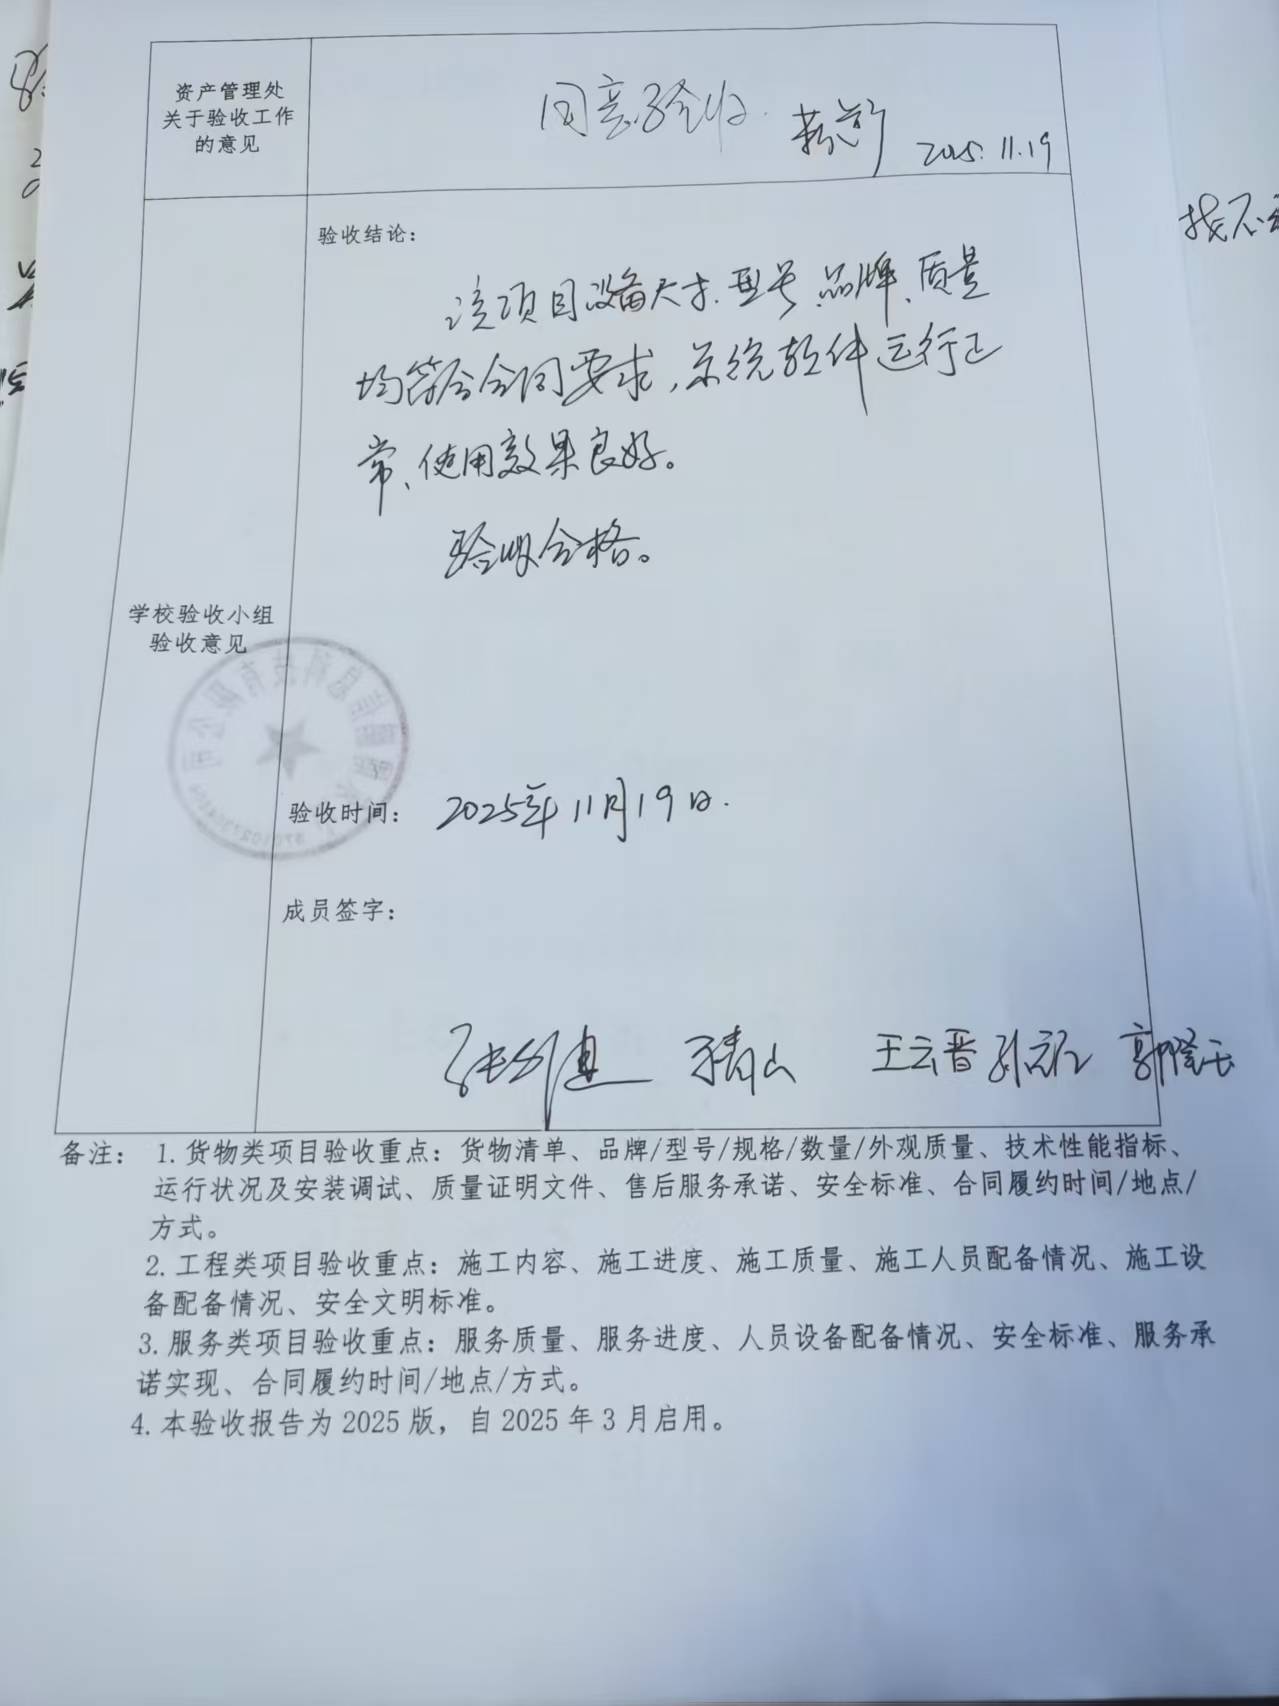 资产管理处
关于验收工作
的意见
同意验收.
2025.11.19
验收结论：
该项目设备尺寸、型号、品牌、质量
均符合合同要求，系统软件运行正
常、使用效果良好。
验收合格。
学校验收小组
验收意见
信息科技有限公司
验收时间： 2025年11月19日.
成员签字：
于青山 王云晋
备注： 1.货物类项目验收重点：货物清单、品牌/型号/规格/数量/外观质量、技术性能指标、
运行状况及安装调试、质量证明文件、售后服务承诺、安全标准、合同履约时间/地点/
方式。
2.工程类项目验收重点：施工内容、施工进度、施工质量、施工人员配备情况、施工设
备配备情况、安全文明标准。
3.服务类项目验收重点：服务质量、服务进度、人员设备配备情况、安全标准、服务承
诺实现、合同履约时间/地点/方式。
4.本验收报告为 2025 版，自 2025 年 3 月启用。